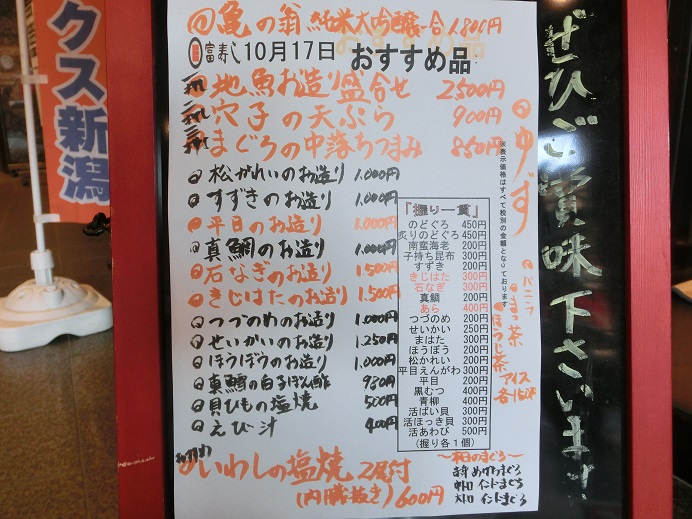 クス新潟
亀の翁 純米大吟醸 一合 1,800円
富寿し 10月17日 おすすめ品
地魚お造り盛合せ 2500円
穴子の天ぷら 900円
まぐろの中落ちつまみ 850円
松がれいのお造り 1,000円
すずきのお造り 1,000円
平目のお造り 1,000円
真鯛のお造り 1,000円
石なぎのお造り 1,500円
きじはたのお造り 1,500円
つづのめのお造り 1,000円
せいがいのお造り 1,250円
ほうぼうのお造り 1,000円
真鱈の白子ぽん酢 980円
貝ひもの塩焼 500円
えび汁 400円
いわしの塩焼 2尾付
(内臓抜き) 600円
「握り一貫」
のどぐろ 450円
炙りのどぐろ 450円
南蛮海老 200円
子持ち昆布 300円
すずき 200円
きじはた 300円
石なぎ 300円
真鯛 200円
あら 400円
つづのめ 200円
せいかい 250円
まはた 300円
ほうぼう 200円
松かれい 200円
平目えんがわ 300円
平目 200円
黒むつ 400円
青柳 400円
活ばい貝 300円
活ほっき貝 300円
活あわび 500円
(握り各1個)
※表示価格はすべて税別の金額となっております
ゆず
バニラ
まっ茶
ほうじ茶
アイス
各150円
〜本日のまぐろ〜
中トロ インドまぐろ
大トロ インドまぐろ
ぜひご賞味下さいませ